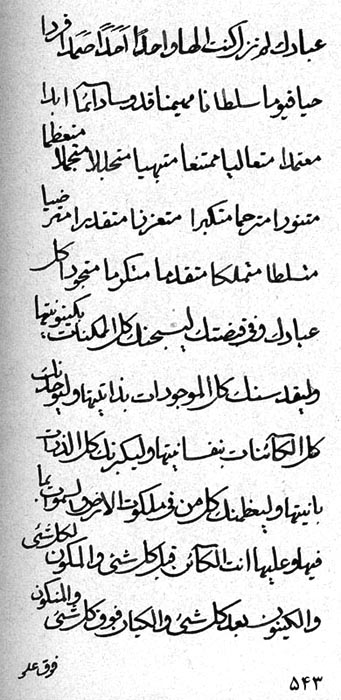 عبادك لم تزل كنت الها واحدا احدا صمدا فردا
حيا قيوما سلطانا مهيمنا قدوسا دائما ابدا
معتمدا متعاليا ممتنعا متبهيا متجللا متجملا متعظما
متنورا مترحما متكبرا متعززا متقدرا مترضيا
متسلطا متملكا متقدما متكرما متجودا كل
عبادك وفي قبضتك ليسبحنك كل الممكنات بكينونيتها
وليقدسنك كل الموجودات بذاتيتها وليوحدنك
كل الكائنات بنفسانيتها وليكبرنك كل الذرات
بانيتها وليعظمنك كل من في ملكوت الارض والسموات بما
فيها وعليها انت الكائن قبل كل شئ والمكون لكل شئ
والكينون بعد كل شئ والكيان فوق كل شئ والمتكون
فوق علمي
٥٤٣